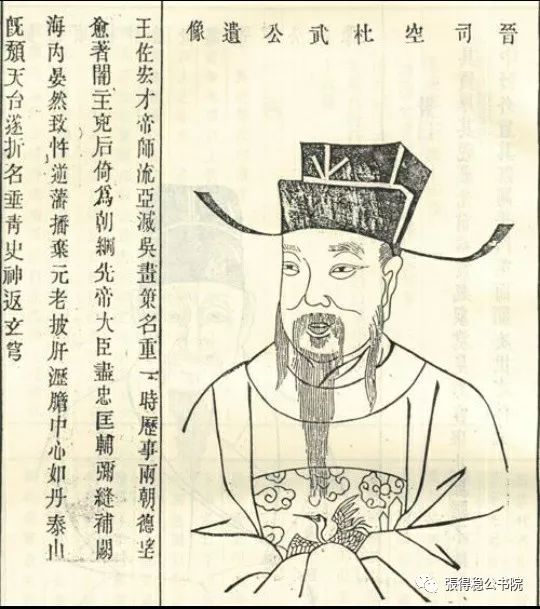 晉司空杜武公遺像
王佐宏才帝師流亞滅吳畫策名重一時歷事兩朝德望
愈著闇主兇后倚為朝綱先帝大臣盡忠匡輔彌縫補闕
海內晏然致忤逆藩播棄元老披肝瀝膽中心如丹泰山
既頹天台遂折名垂青史神返玄穹
張得稳公书院